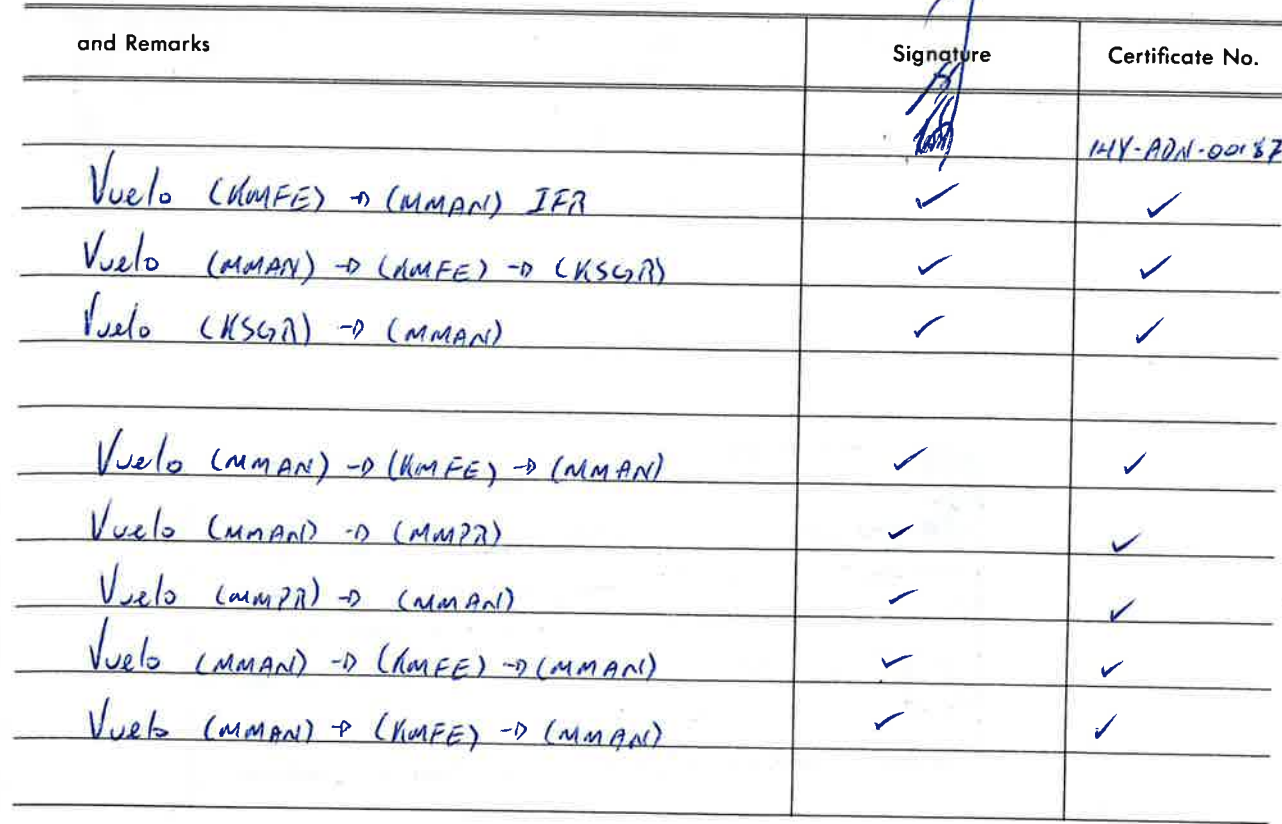 and Remarks Signature Certificate No.
Vuelo (KMFE) → (MMAN) IFR ✓ ✓
Vuelo (MMAN) → (KMFE) → (KSGR) ✓ ✓
Vuelo (KSGR) → (MMAN) ✓ ✓
Vuelo (MMAN) → (KMFE) → (MMAN) ✓ ✓
Vuelo (MMAN) → (MMPR) ✓ ✓
Vuelo (MMPR) → (MMAN) ✓ ✓
Vuelo (MMAN) → (KMFE) → (MMAN) ✓ ✓
Vuelo (MMAN) → (KMFE) → (MMAN) ✓ ✓